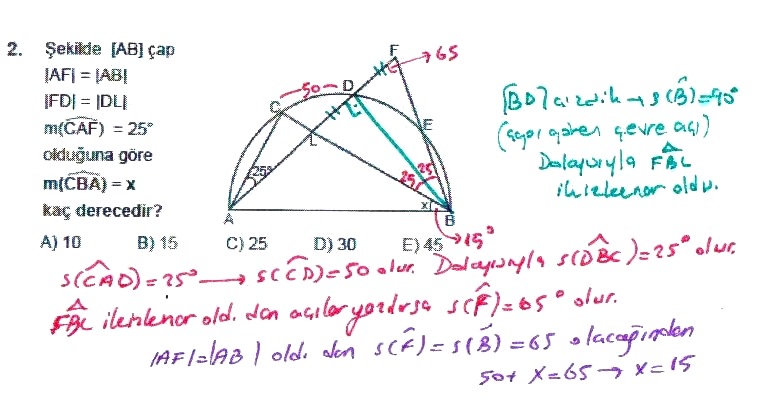 2. Şekilde [AB] çap
|AF| = |AB|
|FD| = |DL|
m(CAF) = 25°
olduğuna göre
m(CBA) = x
kaç derecedir?
A) 10 B) 15 C) 25 D) 30 E) 45
F
65
50
D
C
E
L
25°
25
25
x
A
B
15°
[BD] çizdik → s(B̂)=90°
(çapı gören çevre açı)
Dolayısıyla FBL
ikizkenar oldu.
s(CAD)=25° → s(CD)=50 olur. Dolayısıyla s(DBC)=25° olur.
FBL ikizkenar old. dan açılar yazılırsa s(F̂)=65° olur.
|AF|=|AB| old. dan s(F̂)=s(B̂)=65 olacağından
50+x=65 → x=15